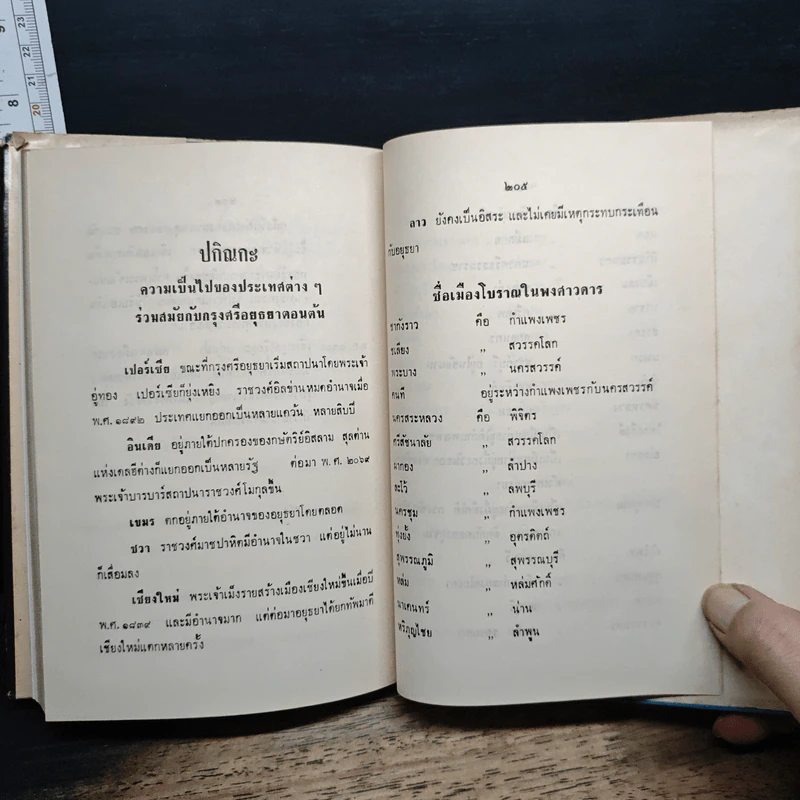 ปกิณกะ
ความเป็นไปของประเทศต่าง ๆ
ร่วมสมัยกับกรุงศรีอยุธยาตอนต้น
เปอร์เซีย ขณะที่กรุงศรีอยุธยาเริ่มสถาปนาโดยพระเจ้า
อู่ทอง เปอร์เซียก็ยุ่งเหยิง ราชวงศ์อิลข่านหมดอำนาจเมื่อ
พ.ศ. ๑๘๙๒ ประเทศแยกออกเป็นหลายแคว้น หลายสิบปี
อินเดีย อยู่ภายใต้ปกครองของกษัตริย์อิสลาม สุลต่าน
แห่งเดลฮีต่างก็แยกออกเป็นหลายรัฐ ต่อมา พ.ศ. ๒๐๖๙
พระเจ้าบารบาร์สถาปนาราชวงศ์โมกุลขึ้น
เขมร ตกอยู่ภายใต้อำนาจของอยุธยาโดยตลอด
ชวา ราชวงศ์มาชปาหิตมีอำนาจในชวา แต่อยู่ไม่นาน
ก็เสื่อมลง
เชียงใหม่ พระเจ้าเม็งรายสร้างเมืองเชียงใหม่ขึ้นเมื่อปี
พ.ศ. ๑๘๓๙ และมีอำนาจมาก แต่ต่อมาอยุธยาได้ยกทัพมาตี
เชียงใหม่แตกหลายครั้ง
๒๐๕
ลาว ยังคงเป็นอิสระ และไม่เคยมีเหตุกระทบกระเทือน
กับอยุธยา
ชื่อเมืองโบราณในพงศาวดาร
ชากังราว คือ กำแพงเพชร
เชลียง ,, สวรรคโลก
พระบาง ,, นครสวรรค์
คนที อยู่ระหว่างกำแพงเพชรกับนครสวรรค์
นครสระหลวง คือ พิจิตร
ศรีสัชนาลัย ,, สวรรคโลก
,, ลำปาง
ละโว้ ,, ลพบุรี
นครชุม ,, กำแพงเพชร
ทุ่งยั้ง ,, อุตรดิตถ์
สุพรรณภูมิ ,, สุพรรณบุรี
หล่ม ,, หล่มศักดิ์
,, น่าน
หริภุญไชย ,, ลำพูน
8
9
20
21
22
23